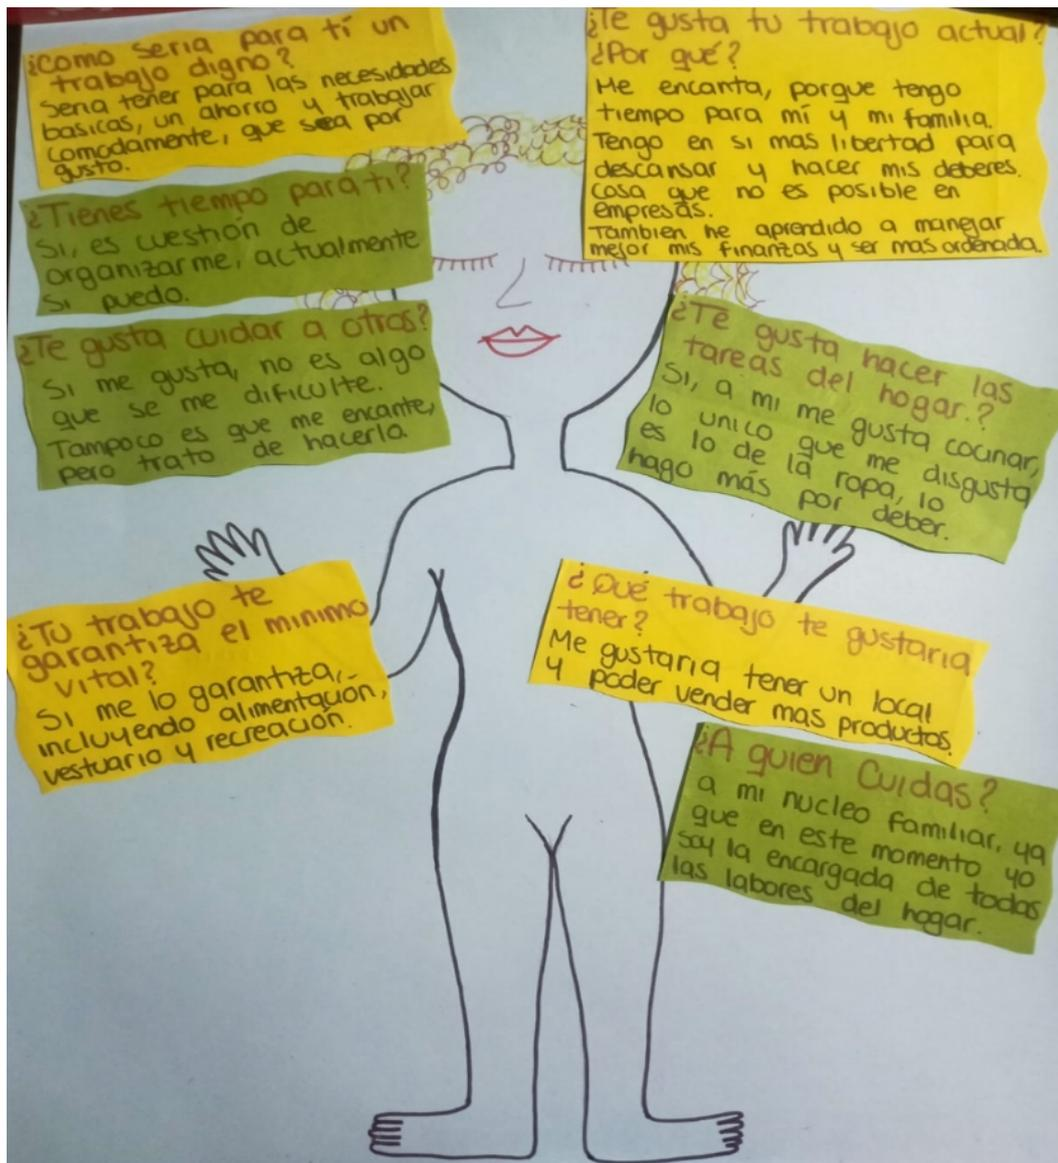 ¿Como seria para tí un
trabajo digno?
Seria tener para las necesidades
basicas, un ahorro y trabajar
comodamente, que sea por
gusto.
¿Tienes tiempo para ti?
Si, es cuestión de
organizarme, actualmente
si puedo.
¿Te gusta cuidar a otros?
Si me gusta, no es algo
que se me dificulte.
Tampoco es que me encante,
pero trato de hacerlo.
¿Tu trabajo te
garantiza el minimo
vital?
Si me lo garantiza,
incluyendo alimentación,
vestuario y recreación.
¿Te gusta tu trabajo actual?
¿Por qué?
Me encanta, porque tengo
tiempo para mí y mi familia.
Tengo en si mas libertad para
descansar y hacer mis deberes.
cosa que no es posible en
empresas.
Tambien he aprendido a manejar
mejor mis finanzas y ser mas ordenada.
¿Te gusta hacer las
tareas del hogar.?
Si, a mi me gusta cocinar,
lo unico que me disgusta
es lo de la ropa, lo
hago más por deber.
¿Qué trabajo te gustaria
tener?
Me gustaria tener un local
y poder vender mas productos.
¿A quien Cuidas?
a mi nucleo familiar, ya
que en este momento yo
soy la encargada de todas
las labores del hogar.